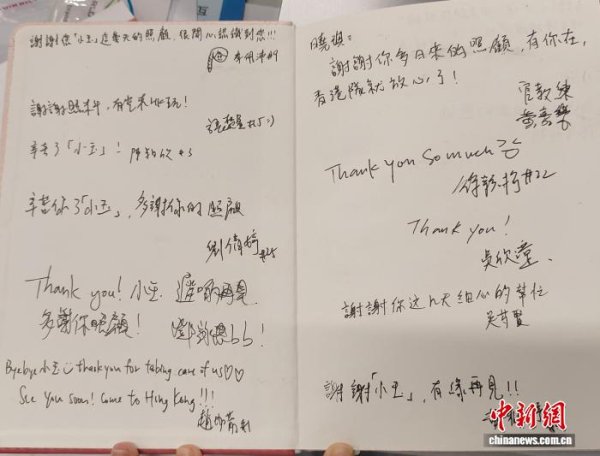 謝謝您「小玉」這幾天的照顧，很開心認識到您!!!
謝謝照料，有空來HK玩!
#15 :)
辛苦了「小玉」! #3
辛苦你了「小玉」，多謝你的照顧
劉倩婷 #25
Thank you! 小玉. 遲啲再見
多謝你照顧!
Bye bye 小玉 thank you for taking care of us♡♡
See you soon! Come to Hong Kong!!!
曉琪：
謝謝你多日來的照顧，有你在，
香港隊就放心了!
官教練
Thank you so much
#22
Thank you!
吳欣霊.
謝謝你這几天细心的幫忙
謝謝「小玉」，有緣再見!!
中新網
www.chinanews.com.cn